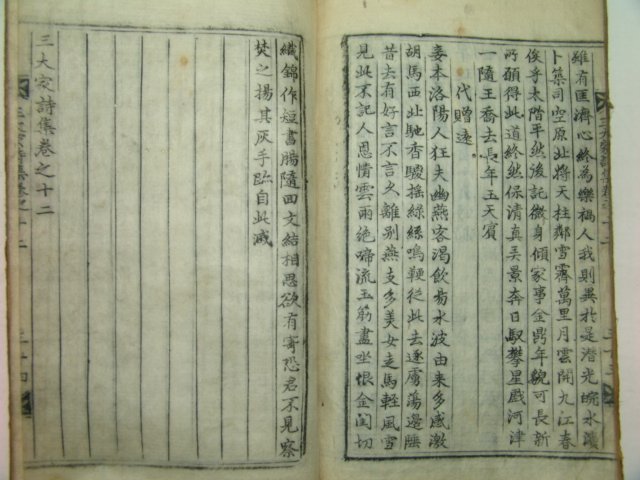 雖有匡濟心終為樂禍人我則異於是潛光皖水濱
卜築司空原北將天柱鄰雪霽萬里月雲開九江春
俟乎太階平然後託微身傾家事金鼎年貌可長新
所願得此道終然保清真弄景奔日馭攀星戲河津
一隨王喬去長年玉天賓
代贈遠
妾本洛陽人狂夫幽燕客渴飲易水波由來多感激
胡馬西北馳香騣搖綠絲鳴鞭從此去逐虜蕩邊陲
昔去有好言不言久離別燕支多美女走馬輕風雪
見此不記人恩情雲雨絕啼流玉筯盡坐恨金閨切
織錦作短書腸隨回文結相思欲有寄恐君不見察
焚之揚其灰手跡自此滅
三大家詩集卷之十二